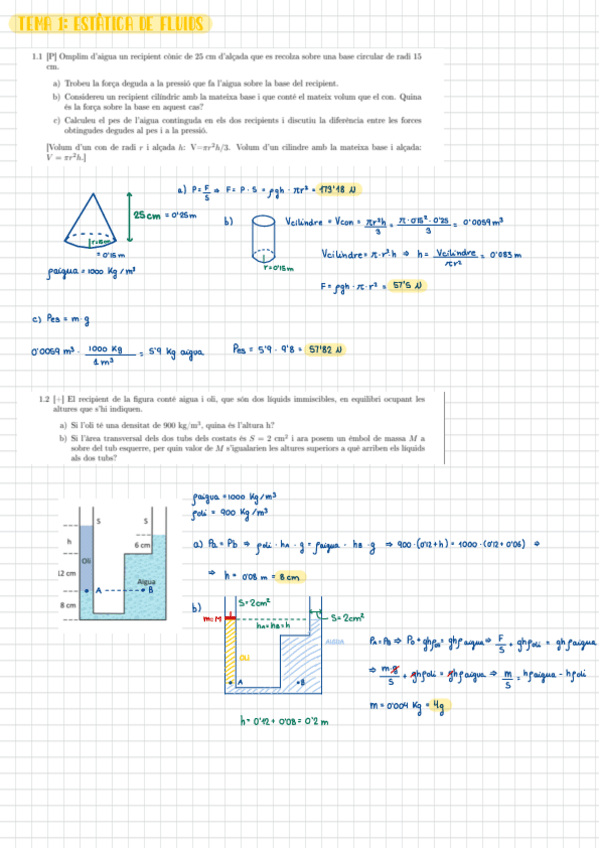 TEMA 1: ESTÀTICA DE FLUIDS
1.1 [P] Omplim d'aigua un recipient cònic de 25 cm d'alçada que es recolza sobre una base circular de radi 15
cm.
a) Trobeu la força deguda a la pressió que fa l'aigua sobre la base del recipient.
b) Considereu un recipient cilíndric amb la mateixa base i que conté el mateix volum que el con. Quina
és la força sobre la base en aquest cas?
c) Calculeu el pes de l'aigua continguda en els dos recipients i discutiu la diferència entre les forces
obtingudes degudes al pes i a la pressió.
[Volum d'un con de radi r i alçada h: V=πr²h/3. Volum d'un cilindre amb la mateixa base i alçada:
V = πr²h.]
a) P = F/S ⇒ F = P · S = ρgh · πr² = 173'18 N
25 cm = 0'25m
r=15cm
= 0'15 m
ρaigua = 1000 Kg/m³
b)
r = 0'15m
Vcilindre = Vcon = πr²h/3 = π·0'15²·0'25/3 = 0'0059 m³
Vcilindre = π·r²·h ⇒ h = Vcilindre/πr² = 0'083 m
F = ρgh · π · r² = 57'5 N
c) Pes = m·g
0'0059 m³ · 1000 Kg/1 m³ = 5'9 Kg aigua
Pes = 5'9 · 9'8 = 57'82 N
1.2 [+] El recipient de la figura conté aigua i oli, que són dos líquids immiscibles, en equilibri ocupant les
altures que s'hi indiquen.
a) Si l'oli té una densitat de 900 kg/m³, quina és l'altura h?
b) Si l'àrea transversal dels dos tubs dels costats és S = 2 cm² i ara posem un èmbol de massa M a
sobre del tub esquerre, per quin valor de M s'igualarien les altures superiors a què arriben els líquids
als dos tubs?
S
S
h
6 cm
Oli
12 cm
Aigua
A
B
8 cm
ρaigua = 1000 Kg/m³
ρoli = 900 Kg/m³
a) Pa = Pb ⇒ ρoli · hA · g = ρaigua · hB · g ⇒ 900·(0'12+h) = 1000·(0'12+0'06) ⇒
⇒ h = 0'08 m = 8 cm
b)
S = 2cm²
m = M
S = 2cm²
hA = hB = h
AIGUA
OLI
A
B
h = 0'12 + 0'08 = 0'2 m
PA = PB ⇒ P0 + ghρoli = ghρaigua ⇒ F/S + ghρoli = ghρaigua
⇒ m·g/S + ghρoli = ghρaigua ⇒ m/S = hρaigua - hρoli
m = 0'004 Kg = 4g